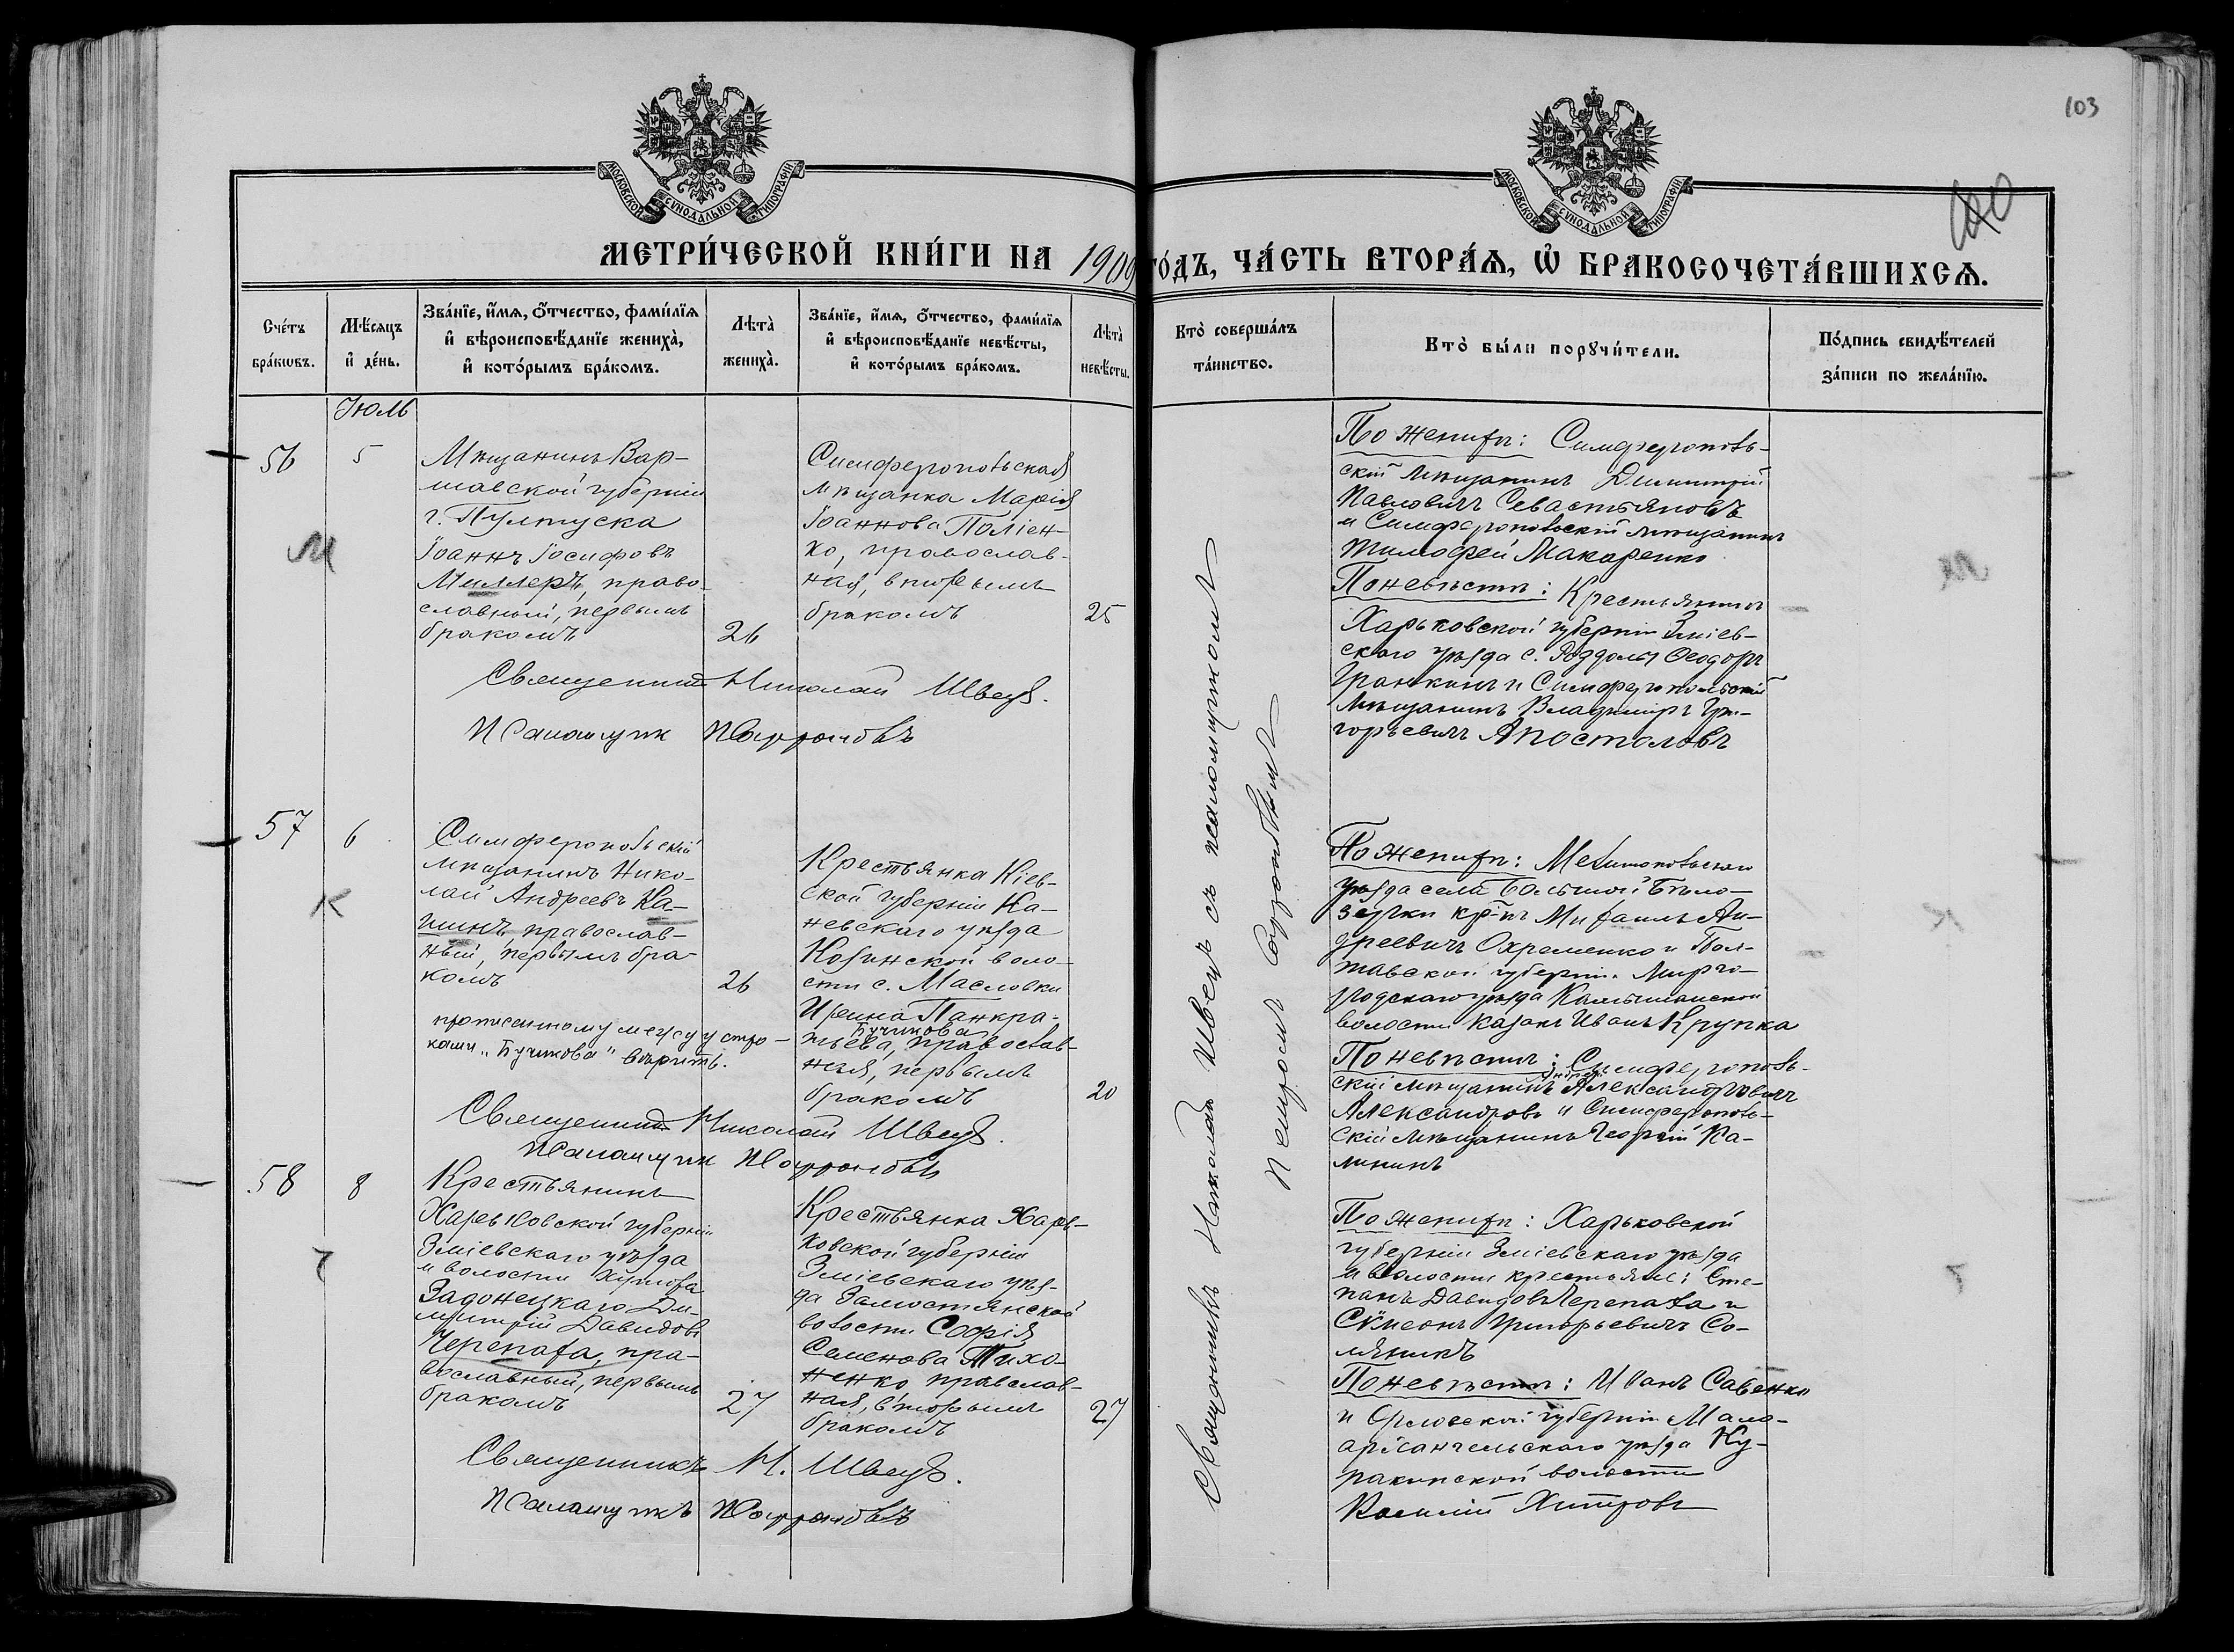 103
МОСКОВСКОЙ СѴНОДАЛЬНОЙ ТИПОГРАФІИ
МОСКОВСКОЙ СѴНОДАЛЬНОЙ ТИПОГРАФІИ
МЕТРИ́ЧЕСКОЙ КНИ́ГИ НА 1909 ГО́ДЪ, ЧА́СТЬ ВТОРА́Ѧ, Ѽ БРАКОСОЧЕТА́ВШИХСѦ.
Сче́тъ
бра́кѡвъ.
Мѣ́сяцъ
и҆ де́нь.
Зва́нїе, и҆́мѧ, ѻ҆́тчество, фами́лїѧ
и҆ вѣроисповѣ́данїе жениха̀,
и҆ кото́рымъ бра́комъ.
Лѣта̀
жениха̀.
Зва́нїе, и҆́мѧ, ѻ҆́тчество, фами́лїѧ
и҆ вѣроисповѣ́данїе невѣ́сты,
и҆ кото́рымъ бра́комъ.
Лѣта̀
невѣ́сты.
Кто̀ соверша́лъ
та́инство.
Кто̀ бы́ли порꙋчи́тели.
По́дпись свидѣ́телей
за́писи по жела́нїю.
Іюль
56
5
Мѣщанинъ Вар-
шавской губерніи
г. Пултуска
Іоаннъ Іосифовъ
Миллеръ, право-
славный, первымъ
бракомъ
26
Симферопольская
мѣщанка Марія
Іоаннова Поліен-
ко, православ-
ная, вторымъ
бракомъ
25
М
Священникъ Николай Швецъ.
Псаломщик
По женихѣ: Симферополь-
скій мѣщанинъ Димитрій
Павловичъ Севастьяновъ
и Симферопольскій мѣщанинъ
Тимофей Макаренко
По невѣстѣ: Крестьянинъ
Харьковской губерніи Зміев-
скаго уѣзда с. Ѳеодоръ
Гранкинъ и Симферопольскій
мѣщанинъ Владиміръ Гри-
горьевичъ Апостоловъ
57
6
К
Симферопольскій
мѣщанинъ Нико-
лай Андреевъ Ка-
шинъ, православ-
ный, первымъ бра-
комъ
26
Крестьянка Кіев-
ской губерніи Ка-
невскаго уѣзда
Козинской воло-
сти с. Масловки
Ирина Панкра-
Бучикова
тьева, православ-
ная, первымъ
бракомъ
20
прописанному между стро-
ками „Бучикова" вѣрить.
Священникъ Николай Швецъ.
Псаломщик
По женихѣ: Мелитопольскаго
уѣзда села Большой Бѣло-
зерки кр-нъ Михаилъ Ан-
дреевичъ Охременко и Пол-
тавской губерніи Мирго-
родскаго уѣзда
волости казакъ Иванъ Крупка
По невѣстѣ: Симферополь-
скій мѣщанинъ Александровичъ
Александровъ и Симферополь-
скій мѣщанинъ Георгій Ка-
лининъ
58
8
Крестьянинъ
Харьковской губерніи
Зміевскаго уѣзда
и волости хутора
Задонецкаго Ди-
митрій Давидовъ
Черепаха, пра-
вославный, первымъ
бракомъ
27
Крестьянка Харь-
ковской губерніи
Зміевскаго уѣз-
да Замостянской
волости Софія
Семенова Тихо-
ненко православ-
ная, вторымъ
бракомъ
27
Священникъ Н. Швецъ.
Псаломщикъ
По женихѣ: Харьковской
губерніи Зміевскаго уѣзда
и волости крестьяне: Сте-
панъ Давидовъ Черепаха и
Сѵмеонъ Григорьевичъ Со-
ляникъ
По невѣстѣ: Иванъ Савенко
и Орловской губерніи Мало-
архангельскаго уѣзда Ку-
ракинской волости
Василій Хитровъ
Священникъ Николай Швецъ съ псаломщикомъ
Петромъ